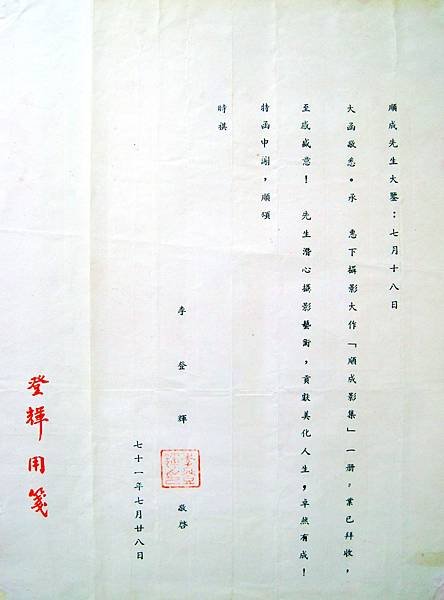 順成先生大鑒：七月十八日
大函敬悉。承　惠下攝影大作「順成影集」一册，業已拜收，
至感盛意！　先生潛心攝影藝術，貢獻美化人生，卓然有成！
特函申謝，順頌
時祺
李登輝　敬啓
七十一年七月廿八日
登輝用箋